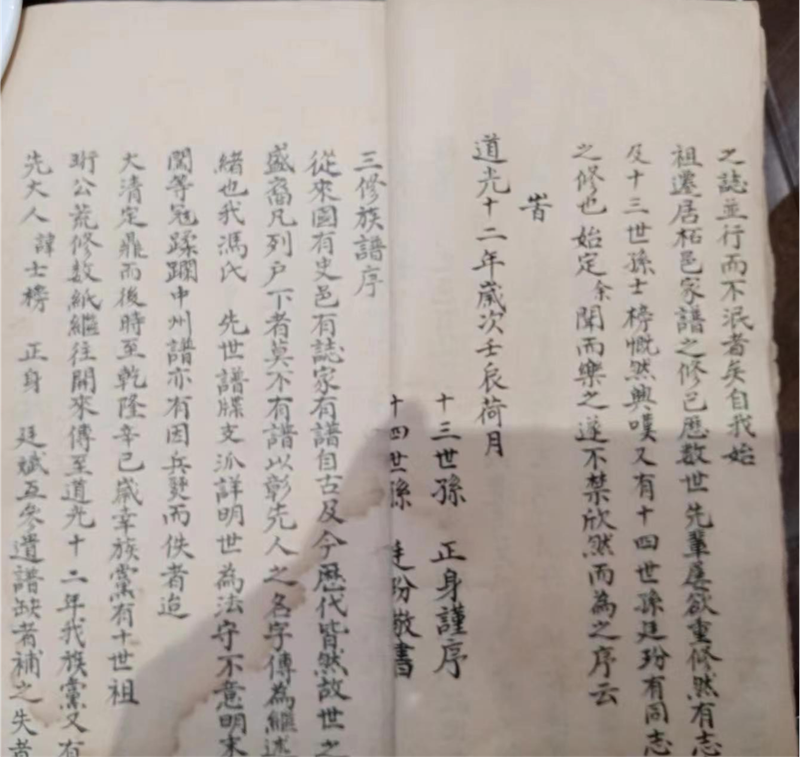 之誌並行而不泯者矣自我始
祖遷居柘邑家譜之修已歷数世先輩屡欲重修然有志
及十三世孫士榜慨然興嘆又有十四世孫廷玢有同志
之修也始定余聞而樂之遂不禁欣然而為之序云
峕
道光十二年歲次壬辰荷月
十三世孫 正身謹序
十四世孫 廷玢敬書
三修族譜序
從來國有史邑有誌家有譜自古及今歷代皆然故世之
盛裔凡列户下者莫不有譜以彰先人之名字傳為繼述
緒也我馮氏 先世譜牒支派詳明世為法守不意明末
闖等冦蹂躙中州譜亦有因兵燹而佚者迨
大清定鼎而後時至乾隆辛巳歲幸族黨有十世祖
珩公荒修数紙繼往開來傳至道光十二年我族黨又有
先大人 諱士榜 正身 廷斌互參遺譜缺者補之失者